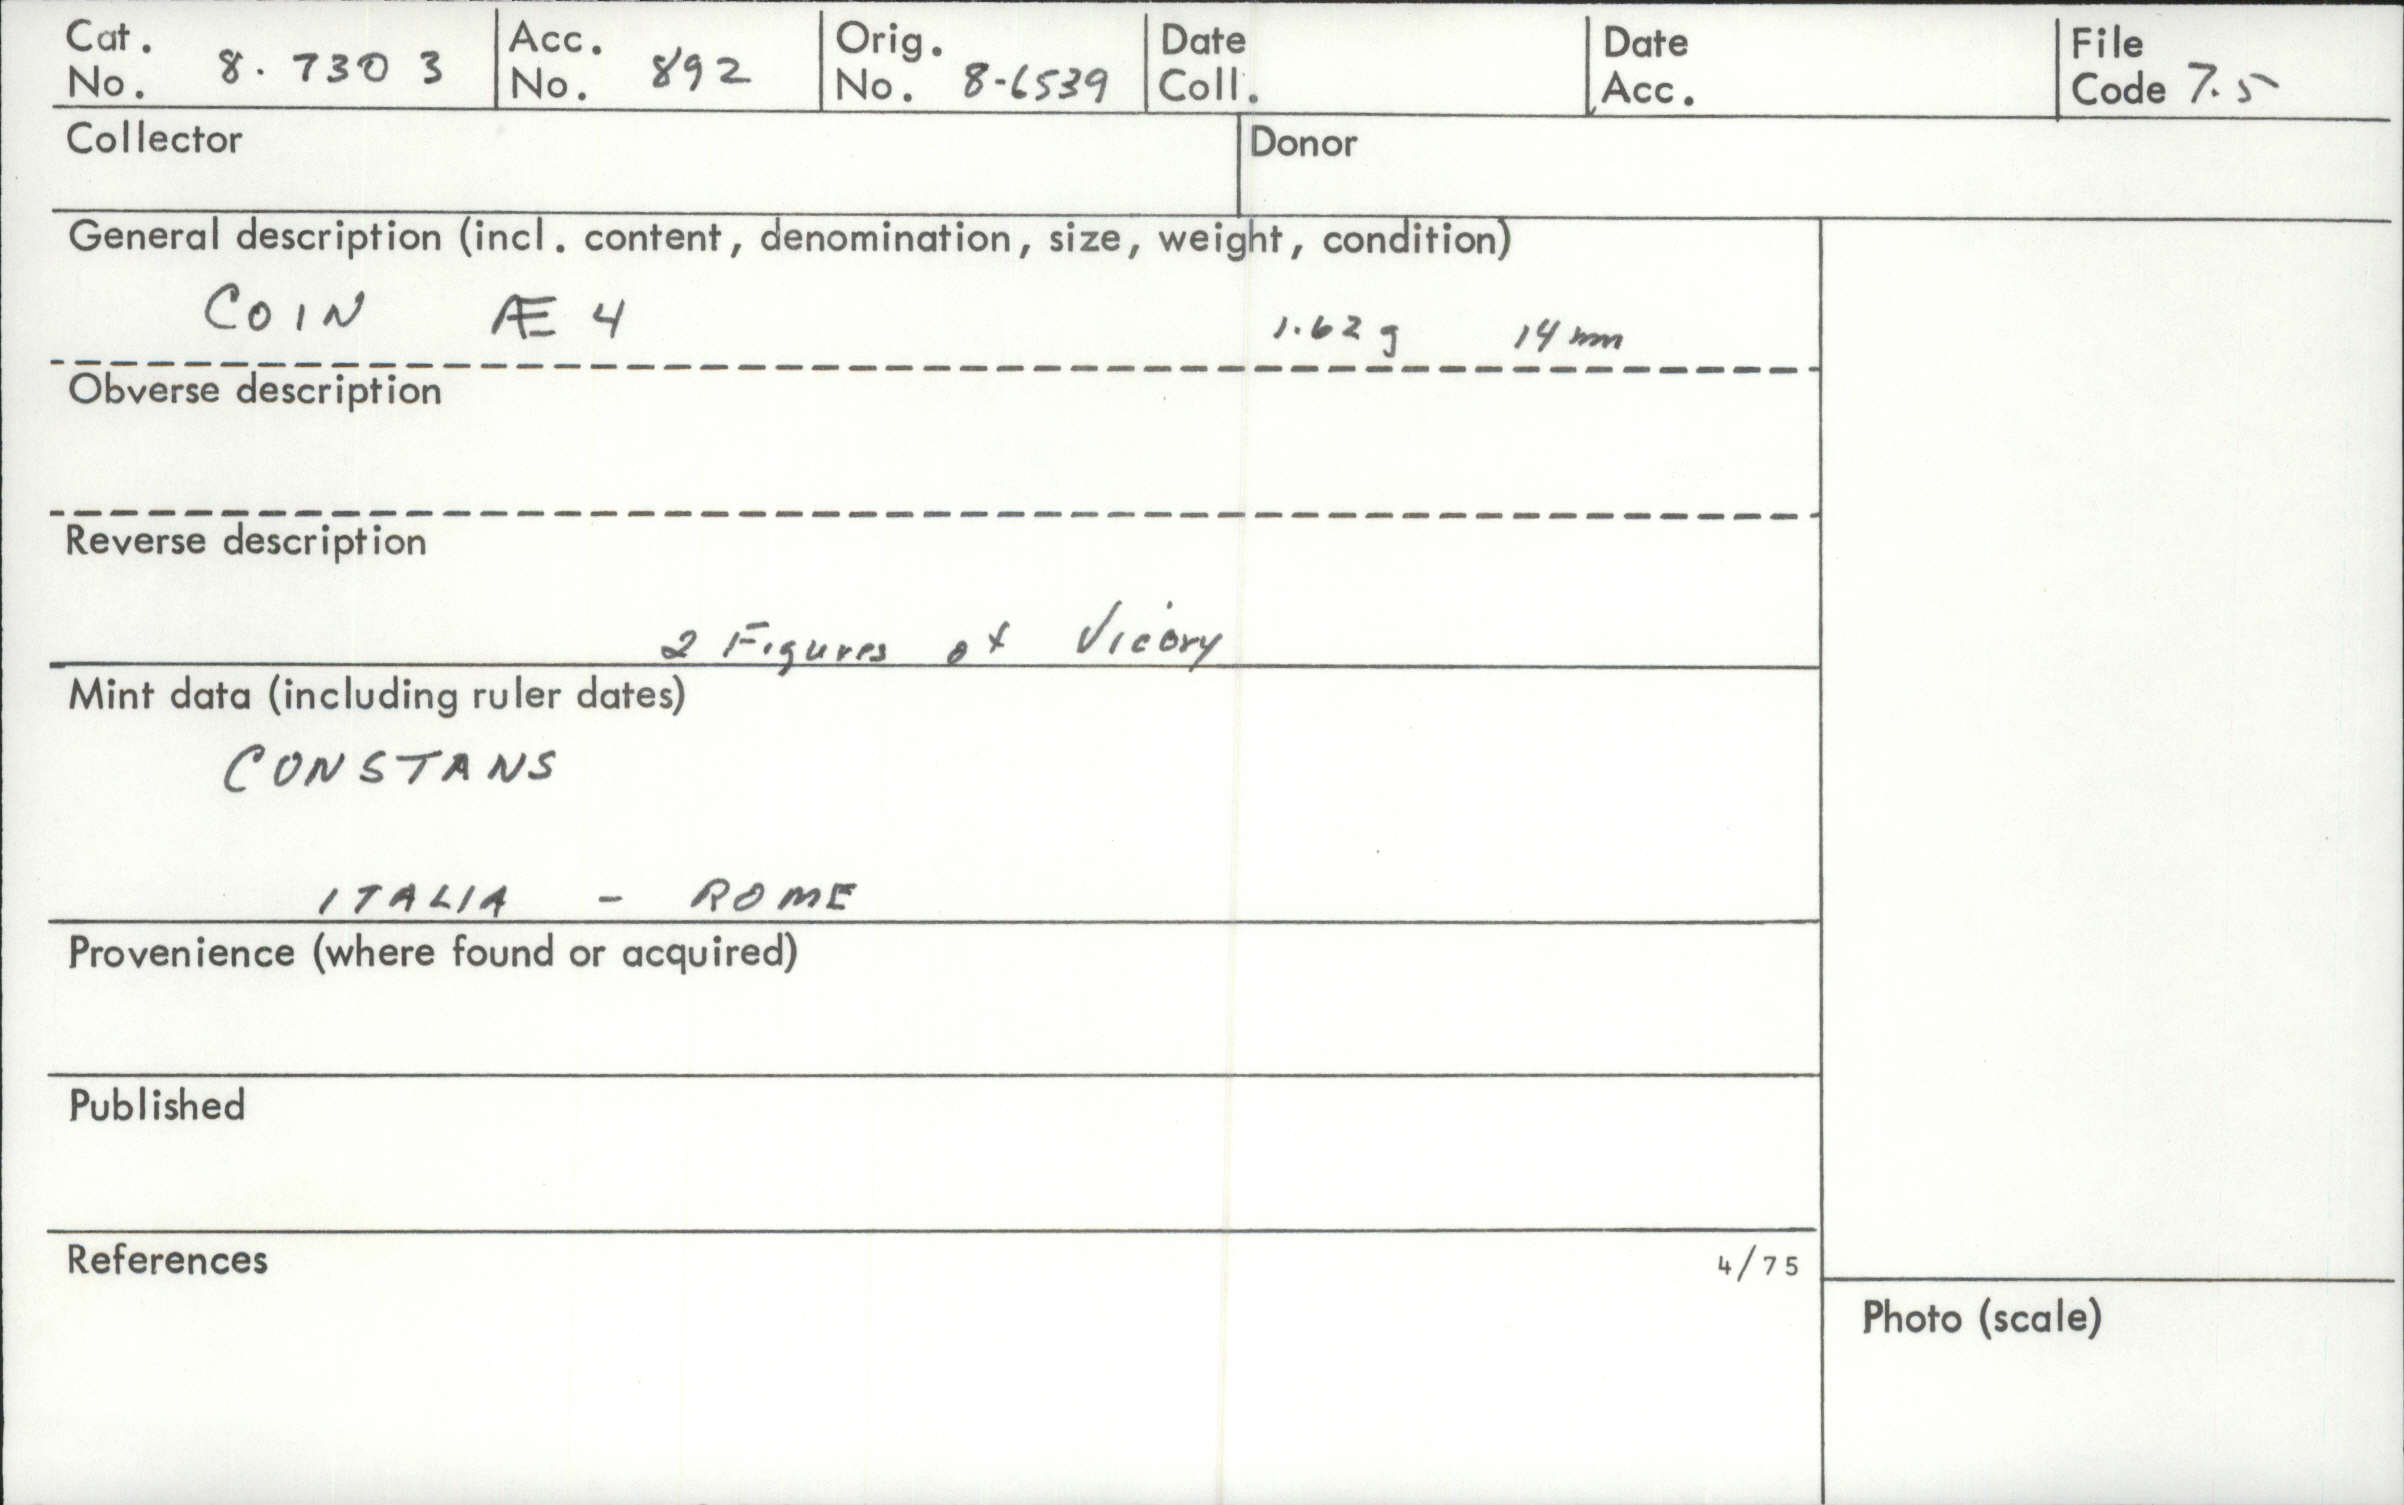 Cat. No. 8. 7303
Acc. No. 892
Orig. No. 8-6539
Date Coll.
Date Acc.
File Code 7.5
Collector
Donor
General description (incl. content, denomination, size, weight, condition)
COIN Æ 4 1.62 g 14 mm
Obverse description
Reverse description
2 Figures of Vicory
Mint data (including ruler dates)
CONSTANS
ITALIA - ROME
Provenience (where found or acquired)
Published
References
4/75
Photo (scale)